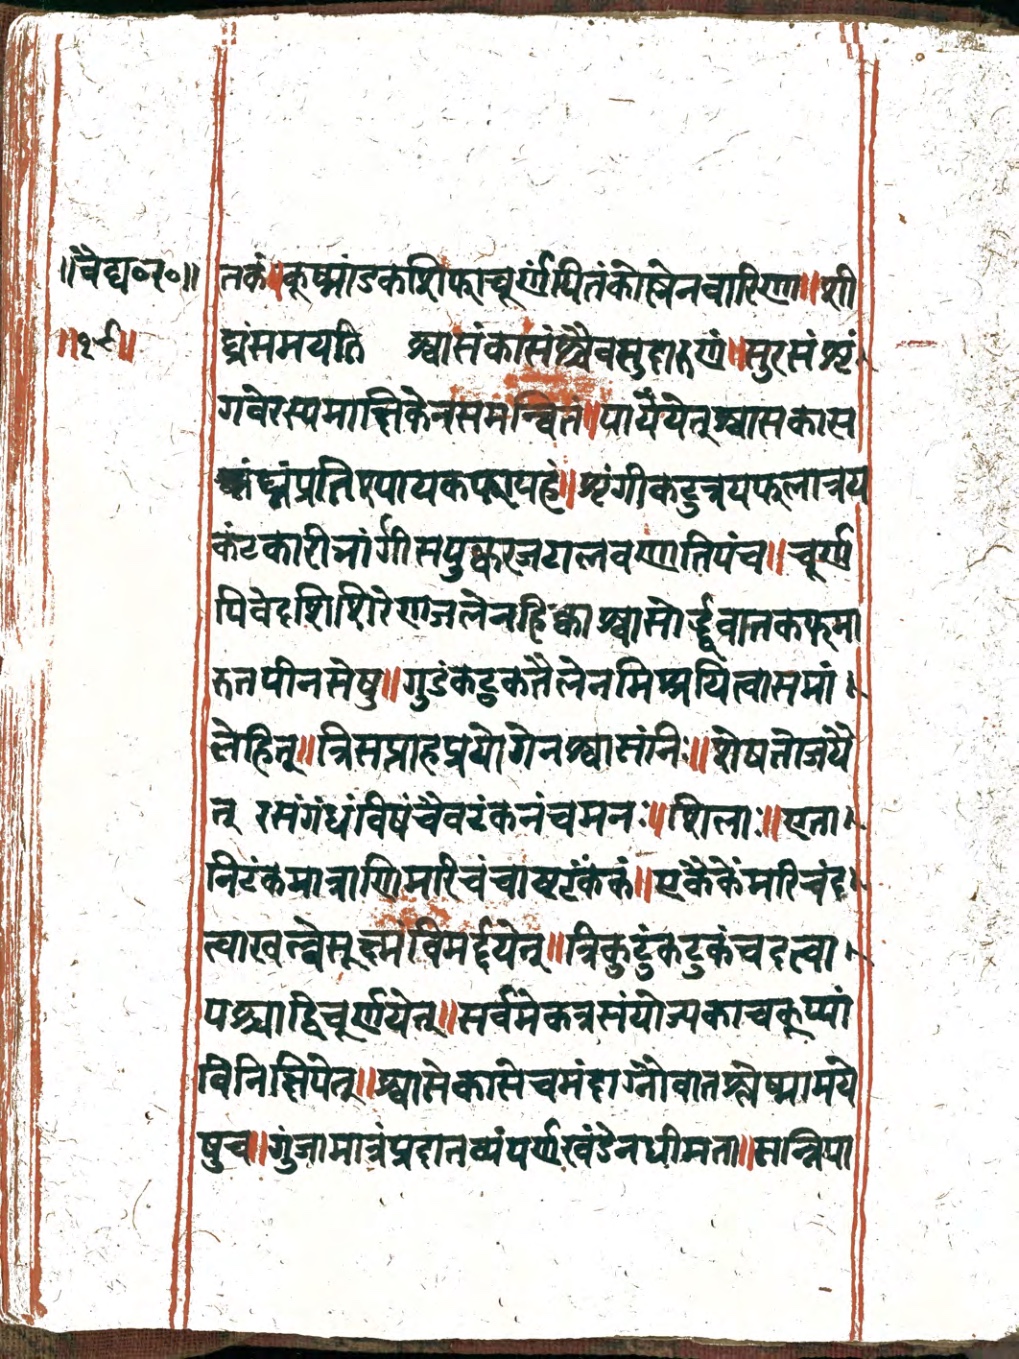 ॥वैद्य०र०॥
॥१९॥
तकं॥कूष्मांडकशिफाचूर्णंपितंकोस्नेनवारिणा॥शी
घ्रंसमयति श्वासंकासंश्चैवसुदारुणं॥सुरसंशृं
गवेरस्यमाक्षिकेनसमन्वितं॥पाययेत्श्वासकास
घ्नंप्रतिश्यायकफापहं॥शृंगीकटुत्रयफलात्रय
कंटकारीभार्गीसपुष्करजटालवणातिपंच॥चूर्णं
पिवेदशिशिरेणजलेनहिक्काश्वासोर्द्ध्ववातकफमा
रुतपीनसेषु॥गुडंकटुकतैलेनमिश्रयित्वासमां
लेहित्॥त्रिसप्ताहप्रयोगेनश्वासंनिः॥शेषतोजये
त् रसंगंधंविषंचैवटंकनंचमनः॥शिलाः॥एता
निटंकमात्राणिमरिचंचाष्टटंककं॥एकैकंमरिचंद
त्वाखल्वेसूक्ष्मंविमर्द्दयेत्॥त्रिकुटुंकटुकंचदत्वा
पश्चाद्विचूर्णयेत्॥सर्वमेकत्रसंयोज्यकाचकूप्यां
विनिक्षिपेत्॥श्वासेकासेचमंदाग्नौवातश्लेष्मामये
षुच॥गुंजामात्रंप्रदातव्यंपर्णखंडेनधीमता॥सन्निपा